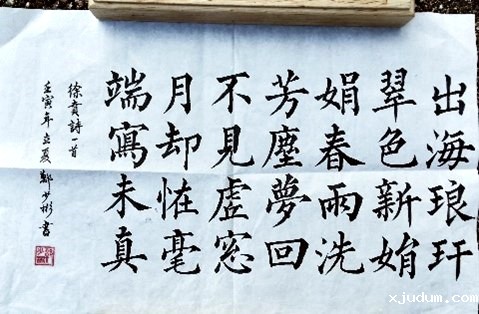 出海琅玕
翠色新娟
娟春雨洗
芳塵夢回
不見虛窓
月却恠毫
端寫未真
徐賁詩一首
壬寅年立夏鄭少彬書
xjudum.com